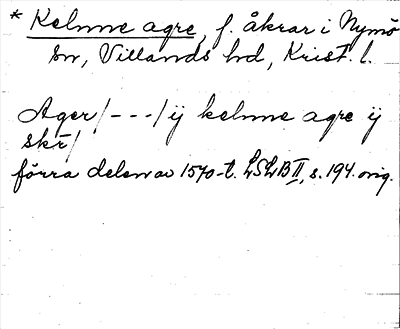 * Kelnne agre, f. åkrar i Nymö
sn, Villands hd, Krist. l.
Ager/---/ij kelnne agre ij
skr/
förra delen av 1570-t. LSLB II, s. 194. orig.